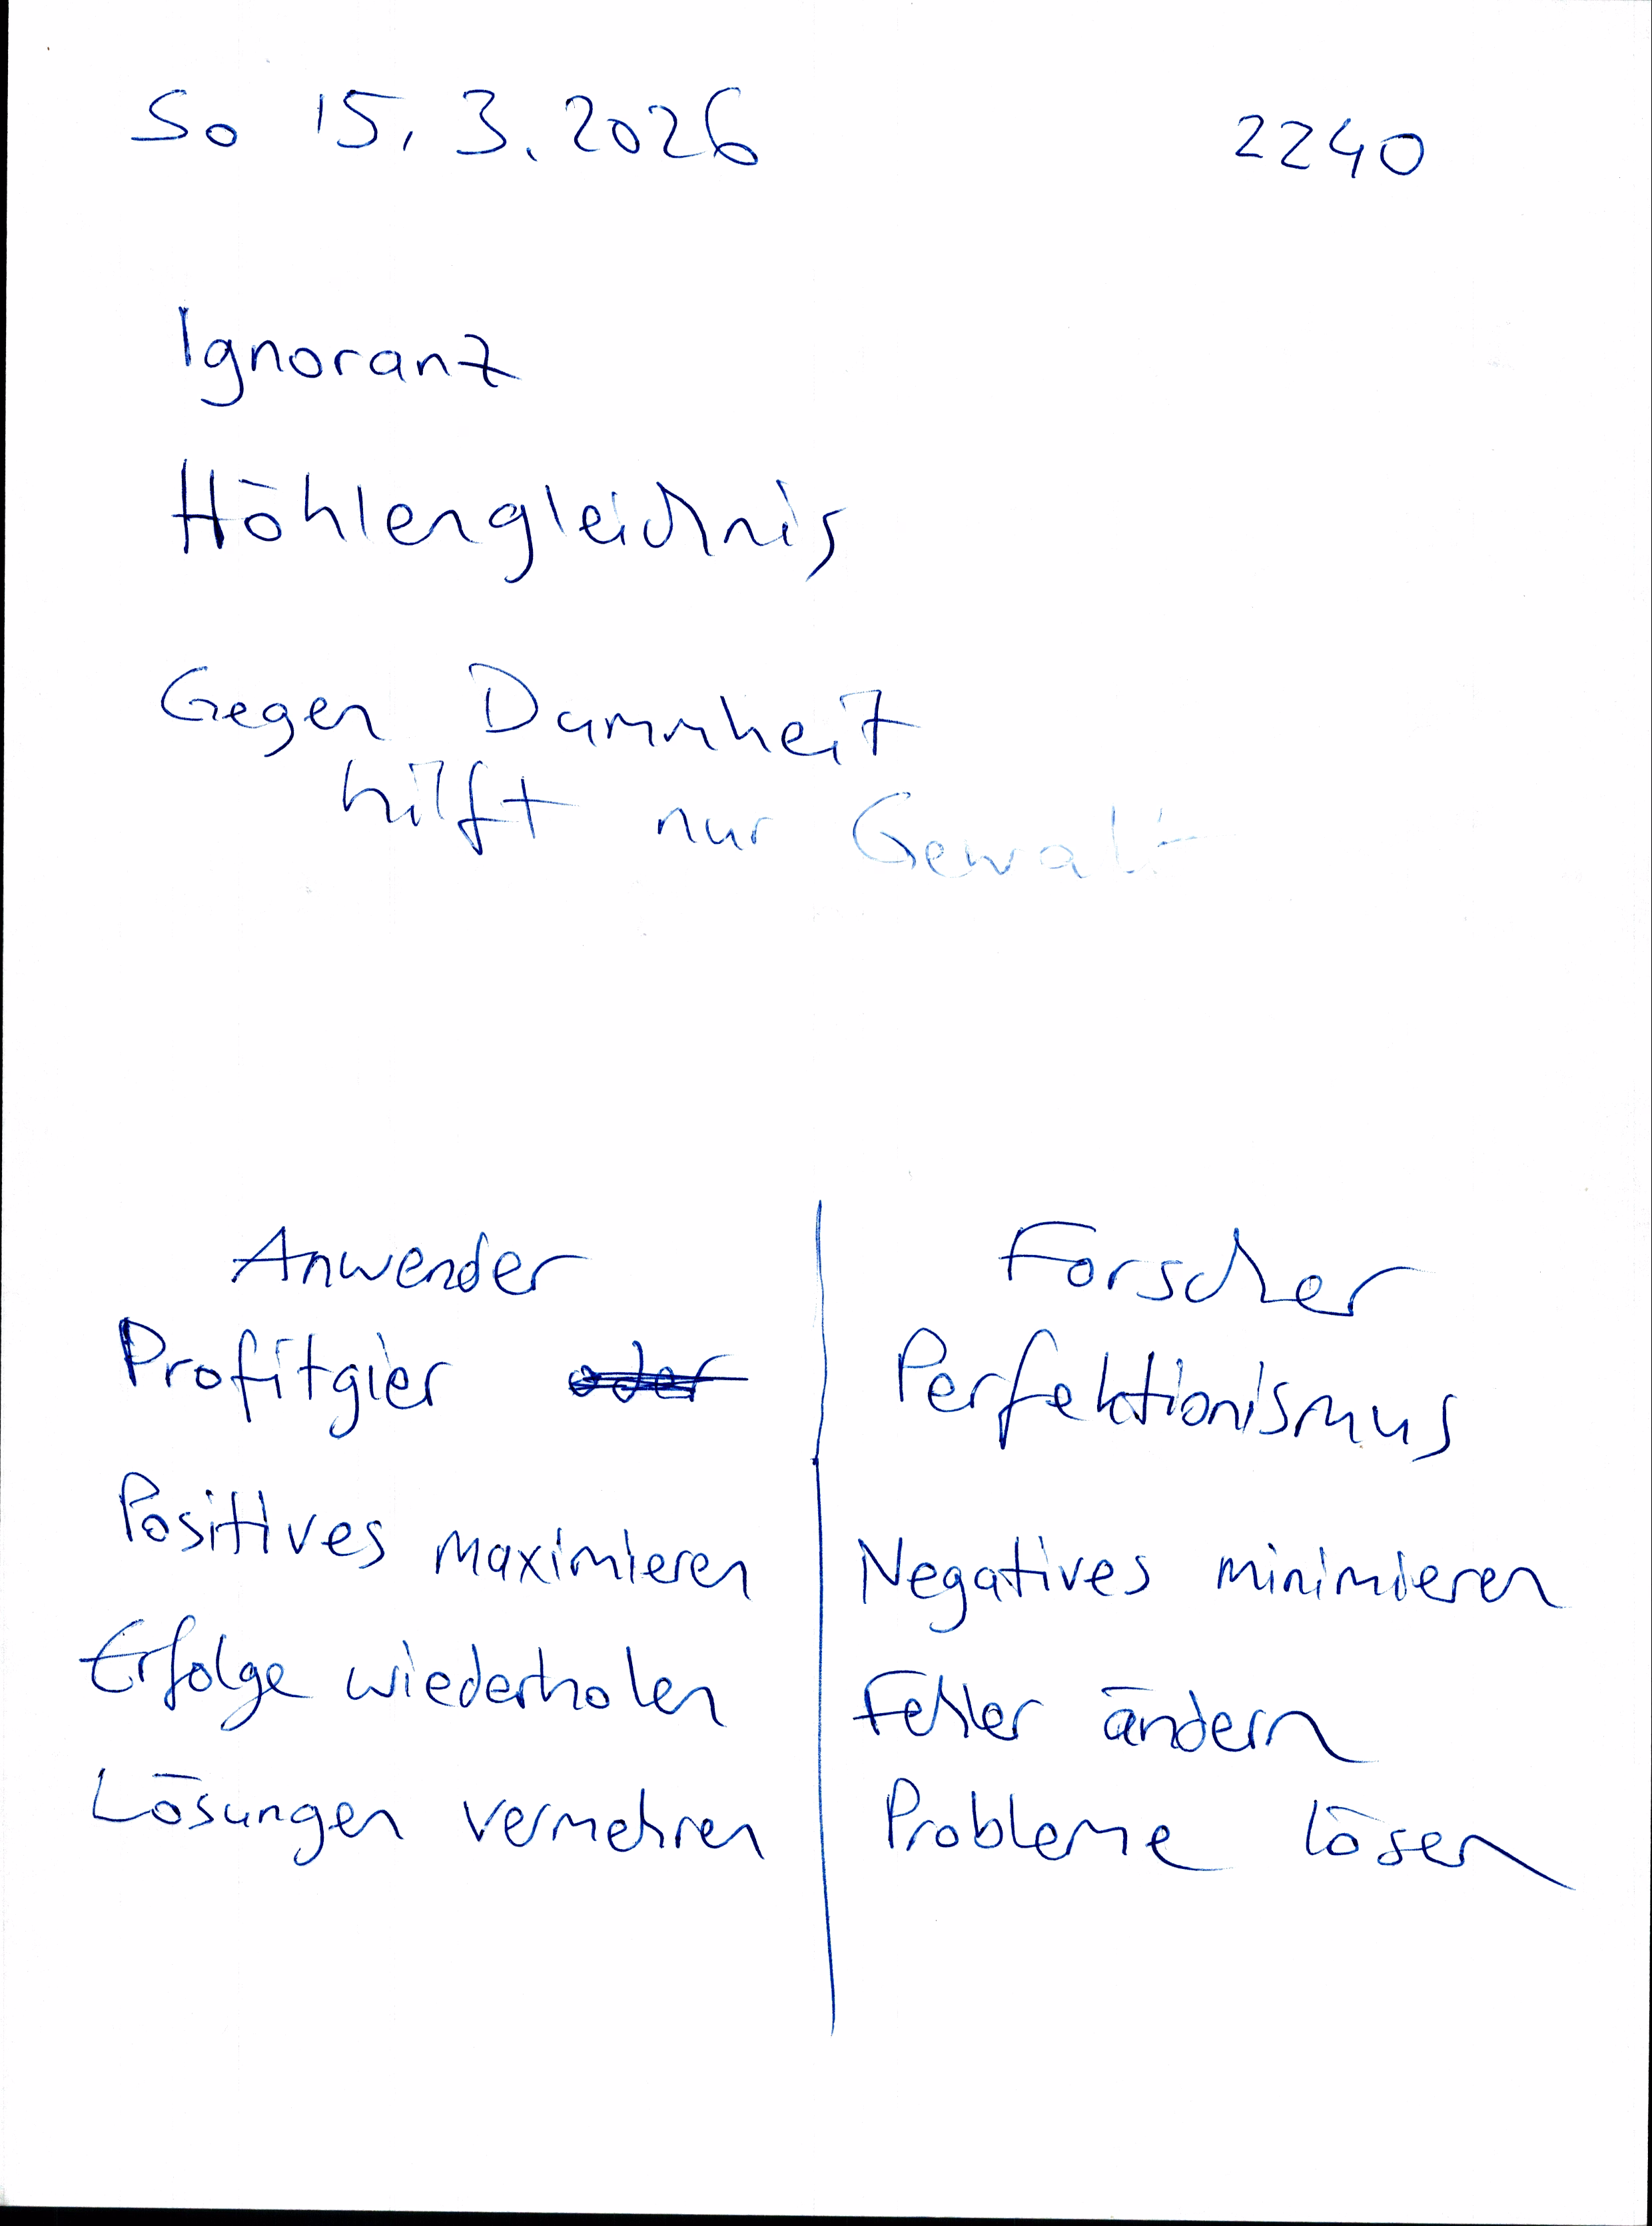 So 15.3.2026 2240
Ignoranz
Höhlengleichnis
Gegen Dummheit
hilft nur Gewalt
Anwender
Profitgier oder
Positives maximieren
Erfolge wiederholen
Lösungen vermehren
Forscher
Perfektionismus
Negatives minimieren
Fehler ändern
Probleme lösen